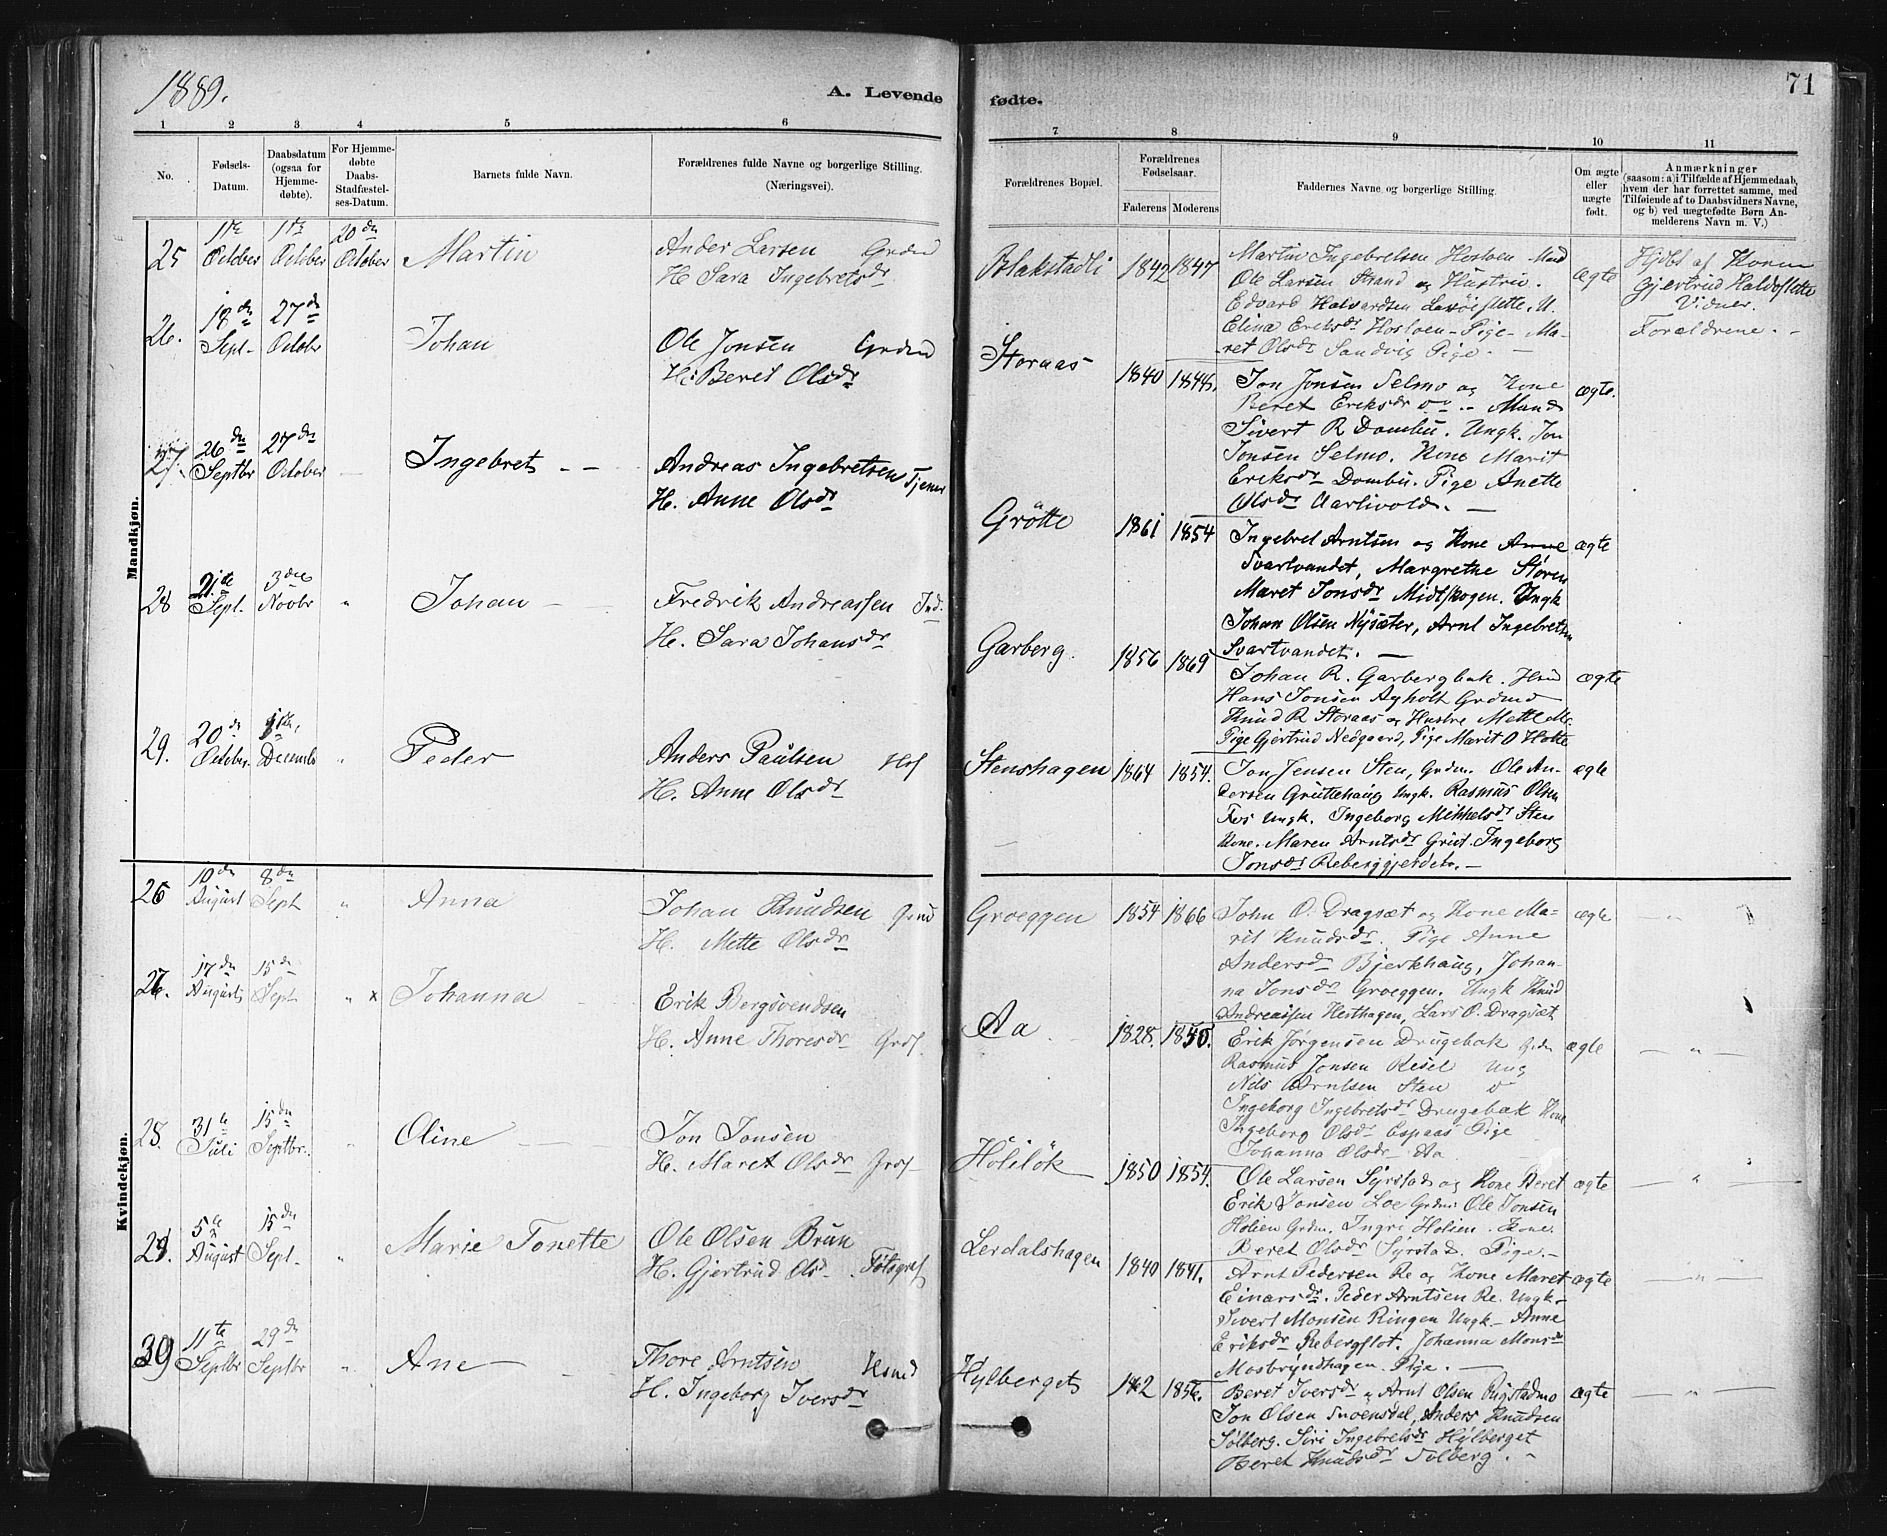 1889.
A. Levende fødte.
71
1 2 3 4 5 6 7 8 9 10 11
No.
Fødsels-Datum.
Daabsdatum (ogsaa for Hjemme-døbte).
For Hjemme-døbte Daabs-Stadfæstel-ses-Datum.
Barnets fulde Navn.
Forældrenes fulde Navne og borgerlige Stilling. (Næringsvei).
Forældrenes Bopæl.
Forældrenes Fødselsaar.
Faderens Moderens
Faddernes Navne og borgerlige Stilling.
Om ægte eller uægte født.
Anmærkninger
(saasom: a) i Tilfælde af Hjemmedaab,
hvem der har forrettet samme, med
Tilføiende af to Daabsvidners Navne,
og b) ved uegtefødte Børn An-
melderens Navn m. V.)
Mandkjøn.
25 1ste October 1ste October 20de October Martin
Ander Larsen Grdmd
H. Sara Ingebretsdr
Blakstadli 1842 1847
Martin Ingebretsen Hostoen Mand
Ole Larsen Strand og Hustru.
Edvard Halvardsen
Elina Eriksdr Hostoen Pige Ma-
ret Olsdr Sandvig Pige. —
ægte
Hjdbt af Konen
Gjertrud Haldoslette
Vidner.
Forældrene. -
26. 18de Sept. 27de Octobr Johan
Ole Jonsen Grdmd
H: Beret Olsdr
Storaas 1840 1844.
Jon Jonsen Selmo og Kone
Beret Eriksdr Mand
Sivert R Dombu. Ungk. Jon
Jonsen Selmo. Kone Marit
Eriksdr Dombu. Pige Anette
Olsdr Aarlivold. —
ægte.
27. 26de Septbr 27de October Ingebret - -
Andreas Ingebretsen Tjener
H. Anne Olsdr
Grötte 1861 1854
Ingebret Arntsen og Kone Anne
Svartvandet, Margrethe Støren
Maret Jonsdr Midtskogen. Ungk
Johan Olsen Nysæter, Arnt Ingebretsen
Svartvandet. —
ægte
28 21de Sept. 3die Novbr " Johan -
Fredrik Andreassen Ind.
H. Sara Johansdr
Garberg. 1856 1869
Johan R. Garbergbak. Hmd
Hans Jonsen Agholt Grdmd
Knud R Storaas og Hustru Mette
Pige Gjertrud Nedgaard, Pige Marit O Hotte
ægte
29. 20de October 1ste December " Peder
Anders Paulsen
H. Anne Olsdr
Stenshagen 1864 1854.
Jon Jensen Sten, Grdm. Ole An-
dersen Gruttehaug Ungk. Rasmus Olsen
Fos Ungk. Ingeborg Mikkelsdr Sten
Kone. Maren Arntsdr Grut. Ingeborg
Jonsdr Reberggjerdet. —
ægte
Kvindekjøn.
26 10de August 8de Sept " Anna
Johan Knudsen Grmd
H. Mette Olsdr
Groeggen 1854 1866
John O. Dragsæt og Kone Ma-
rit Knudsdr. Pige Anne
Andersdr Bjerkhaug, Johan-
na Jonsdr Groeggen. Ungk Knud
Andreassen Hesthagen, Lars O. Dragsæt
ægte — "
27. 17de August 15de Sept " x Johanna
Erik Bergsvendsen
H. Anne Thoresdr
Aa 1828. 1850.
Erik Jörgensen Drugebak
Rasmus Jonsen Resel Ung
Nils Arntsen Sten
Ingeborg Ingebretsdr Drugebak Kone
Ingeborg Olsdr Espaas Pige
Johanna Olsdr Aa
ægte — " —
28. 31te Juli 15de Septbr. " Oline -
Jon Jonsen
H. Maret Olsdr
Höliløk 1850 1854.
Ole Larsen Syrstad og Kone Beret
Erik Jonsen Loe Grdm. Ole Jonsen
Holien Grdm. Ingri Holien. Kone.
Beret Olsdr Syrstad. Pige. —
ægte — " —
29. 5te August 15de Sept. " Marie Tonette
Ole Olsen Brun
H. Gjertrud Olsdr. Fotograf
Lerdalshagen 1840 1841.
Arnt Pedersen Re og Kone Maret
Einarsdr. Peder Arntsen Re. Ungk -
Sivert Monsen Ringen Ungk - Anne
Eriksdr Rebergflot. Johanna Monsdr
Mosbrynhagen. Pige. —
ægte — " —
30 11te Septbr 29de Septbr " Ane -
Thore Arntsen Hsmd
H. Ingeborg Iversdr
Hylberget 1856.
Beret Iversdr, Arnt Olsen
Jon Olsen Snoensdal, Anders Knudsen
Solberg. Siri Ingebretsdr Hylberget
Beret Knudsdr Solberg. -
ægte — " —